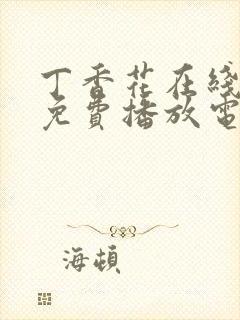 丁香花在綫
免費播放電
海頓